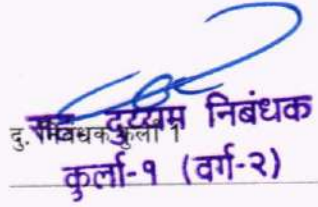 सह दुय्यम निबंधक
दु. निबंधक कुर्ला 1
कुर्ला-१ (वर्ग-२)